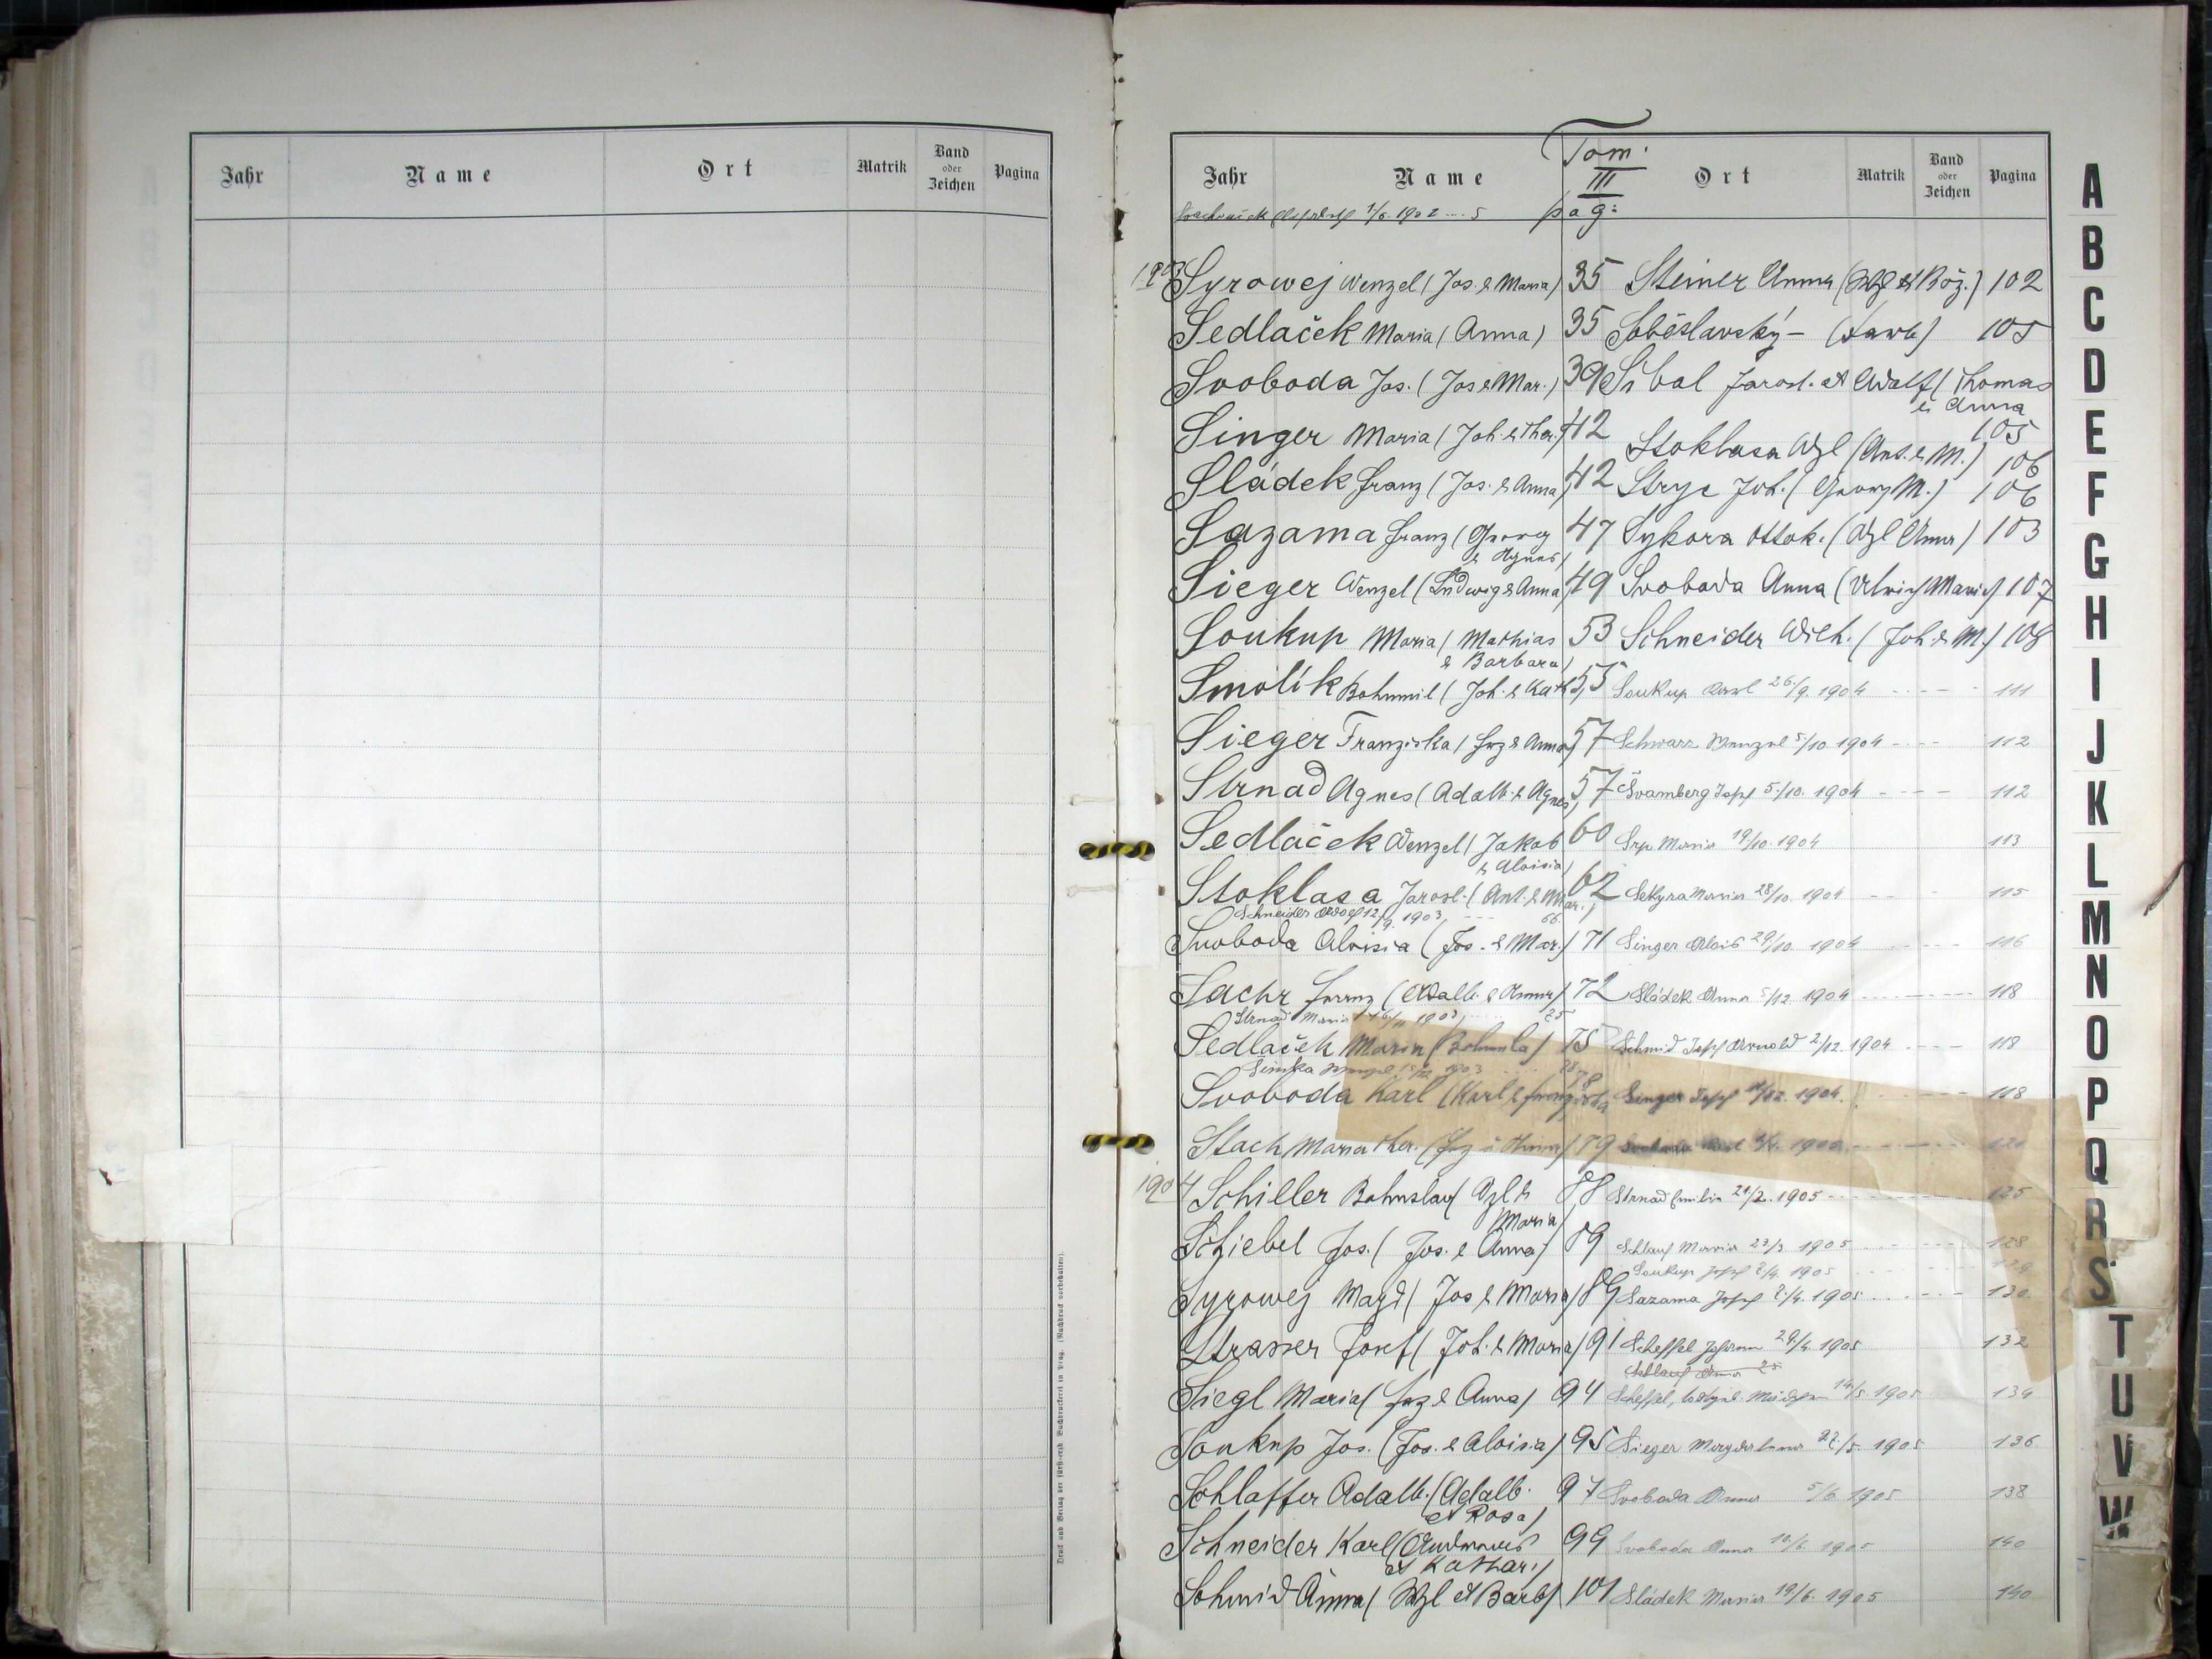 Jahr Name Ort Matrik Band oder Zeichen Pagina
Druck und Verlag der fürst-erzb. Buchdruckerei in Prag. (Nachdruck vorbehalten).
Jahr Name Tom. III pag: Ort Matrik Band oder Zeichen Pagina
1/6. 1902 5
1903 Syrowej Wenzel (Jos. & Maria) 35 Steiner Anna (Wzl et Bož.) 102
Sedlaček Maria (Anna) 35 Soběslavský – 105
Svoboda Jos. (Jos & Mar.) 39 Thomas
& Anna 105
Singer Maria (Joh. & Ther.) 42 Stoklasa Wzl (Ant. & M.) 106
Sládek Franz (Jos. & Anna) 42 Stryc Joh. (Georg M.) 106
Sazama Franz (Georg & Agnes) 47 Sykora Ottok. (Wzl Anna) 103
Sieger Wenzel (Ludwig & Anna) 49 Svoboda Anna (Ulrich Marie) 107
Soukup Maria (Mathias & Barbara) 53 Schneider Wilh. (Joh. & M.) 108
Smolík Bohumil (Joh. & Kath.) 55 Soukup Karl 26./9. 1904 111
Sieger Franziska (Frz & Anna) 57 Schwarz Wenzel 5/10 1904 112
Strnad Agnes (Adalb. & Agnes) 57 Švamberg Josef 5./10. 1904 112
Sedlaček Wenzel (Jakob & Aloisia) 60 Srp Maria 19/10. 1904 113
Stoklasa Jarosl. (Ant. & Mar.) 62 Sekyra Maria 28/10. 1904 115
Schneider Adolf 12/9. 1903 66.
Svoboda Aloisia (Jos. & Mar.) 71 Singer Alois 29/10. 1904 116
Sachr Franz (Adalb. & Anna) 72 Sládek Anna 5/12. 1904 118
Strnad Maria 16/11 1903 75
Sedlaček Maria (Bohumila) 75 Schmid Josef Arnold 2/12. 1904 118
Simka 1903 78
Svoboda Karl (Karl & Franziska) 78 Singer Josef 1904. 118
Stach Maria Ther. (Frz & Anna) 79 Svoboda 1905 121
1904 Schiller Bohuslav (Wzl & Maria) 88 Strnad Emilie 21/2. 1905 125
Stiebel Jos. (Jos. & Anna) 89 Schlauf Maria 23/3 1905 128
Soukup Josef 2/4. 1905 129
Syrowej Magd (Jos & Maria) 89 Sazama Josef 2/4. 1905 130
Strasser Josef (Joh. & Maria) 91 Scheffel Johann 29/4. 1905 132
Schlauf Anna 25
Siegl Maria (Frz & Anna) 94 Scheffel, Mädchen 14/5 1905 134
Soukup Jos. (Jos. & Aloisia) 95 Sieger Magdalena 22/5. 1905 136
Schlaffer Adalb. (Adalb. et Rosa) 97 Svoboda Anna 5/6. 1905 138
Schneider Karl ( et Kathar.) 99 Svoboda Anna 10/6. 1905 140
Schmid Anna (Wzl et Barb) 101 Sládek Maria 19/6. 1905 140
A
B
C
D
E
F
G
H
I
J
K
L
M
N
O
P
Q
R
S
T
U
V
W